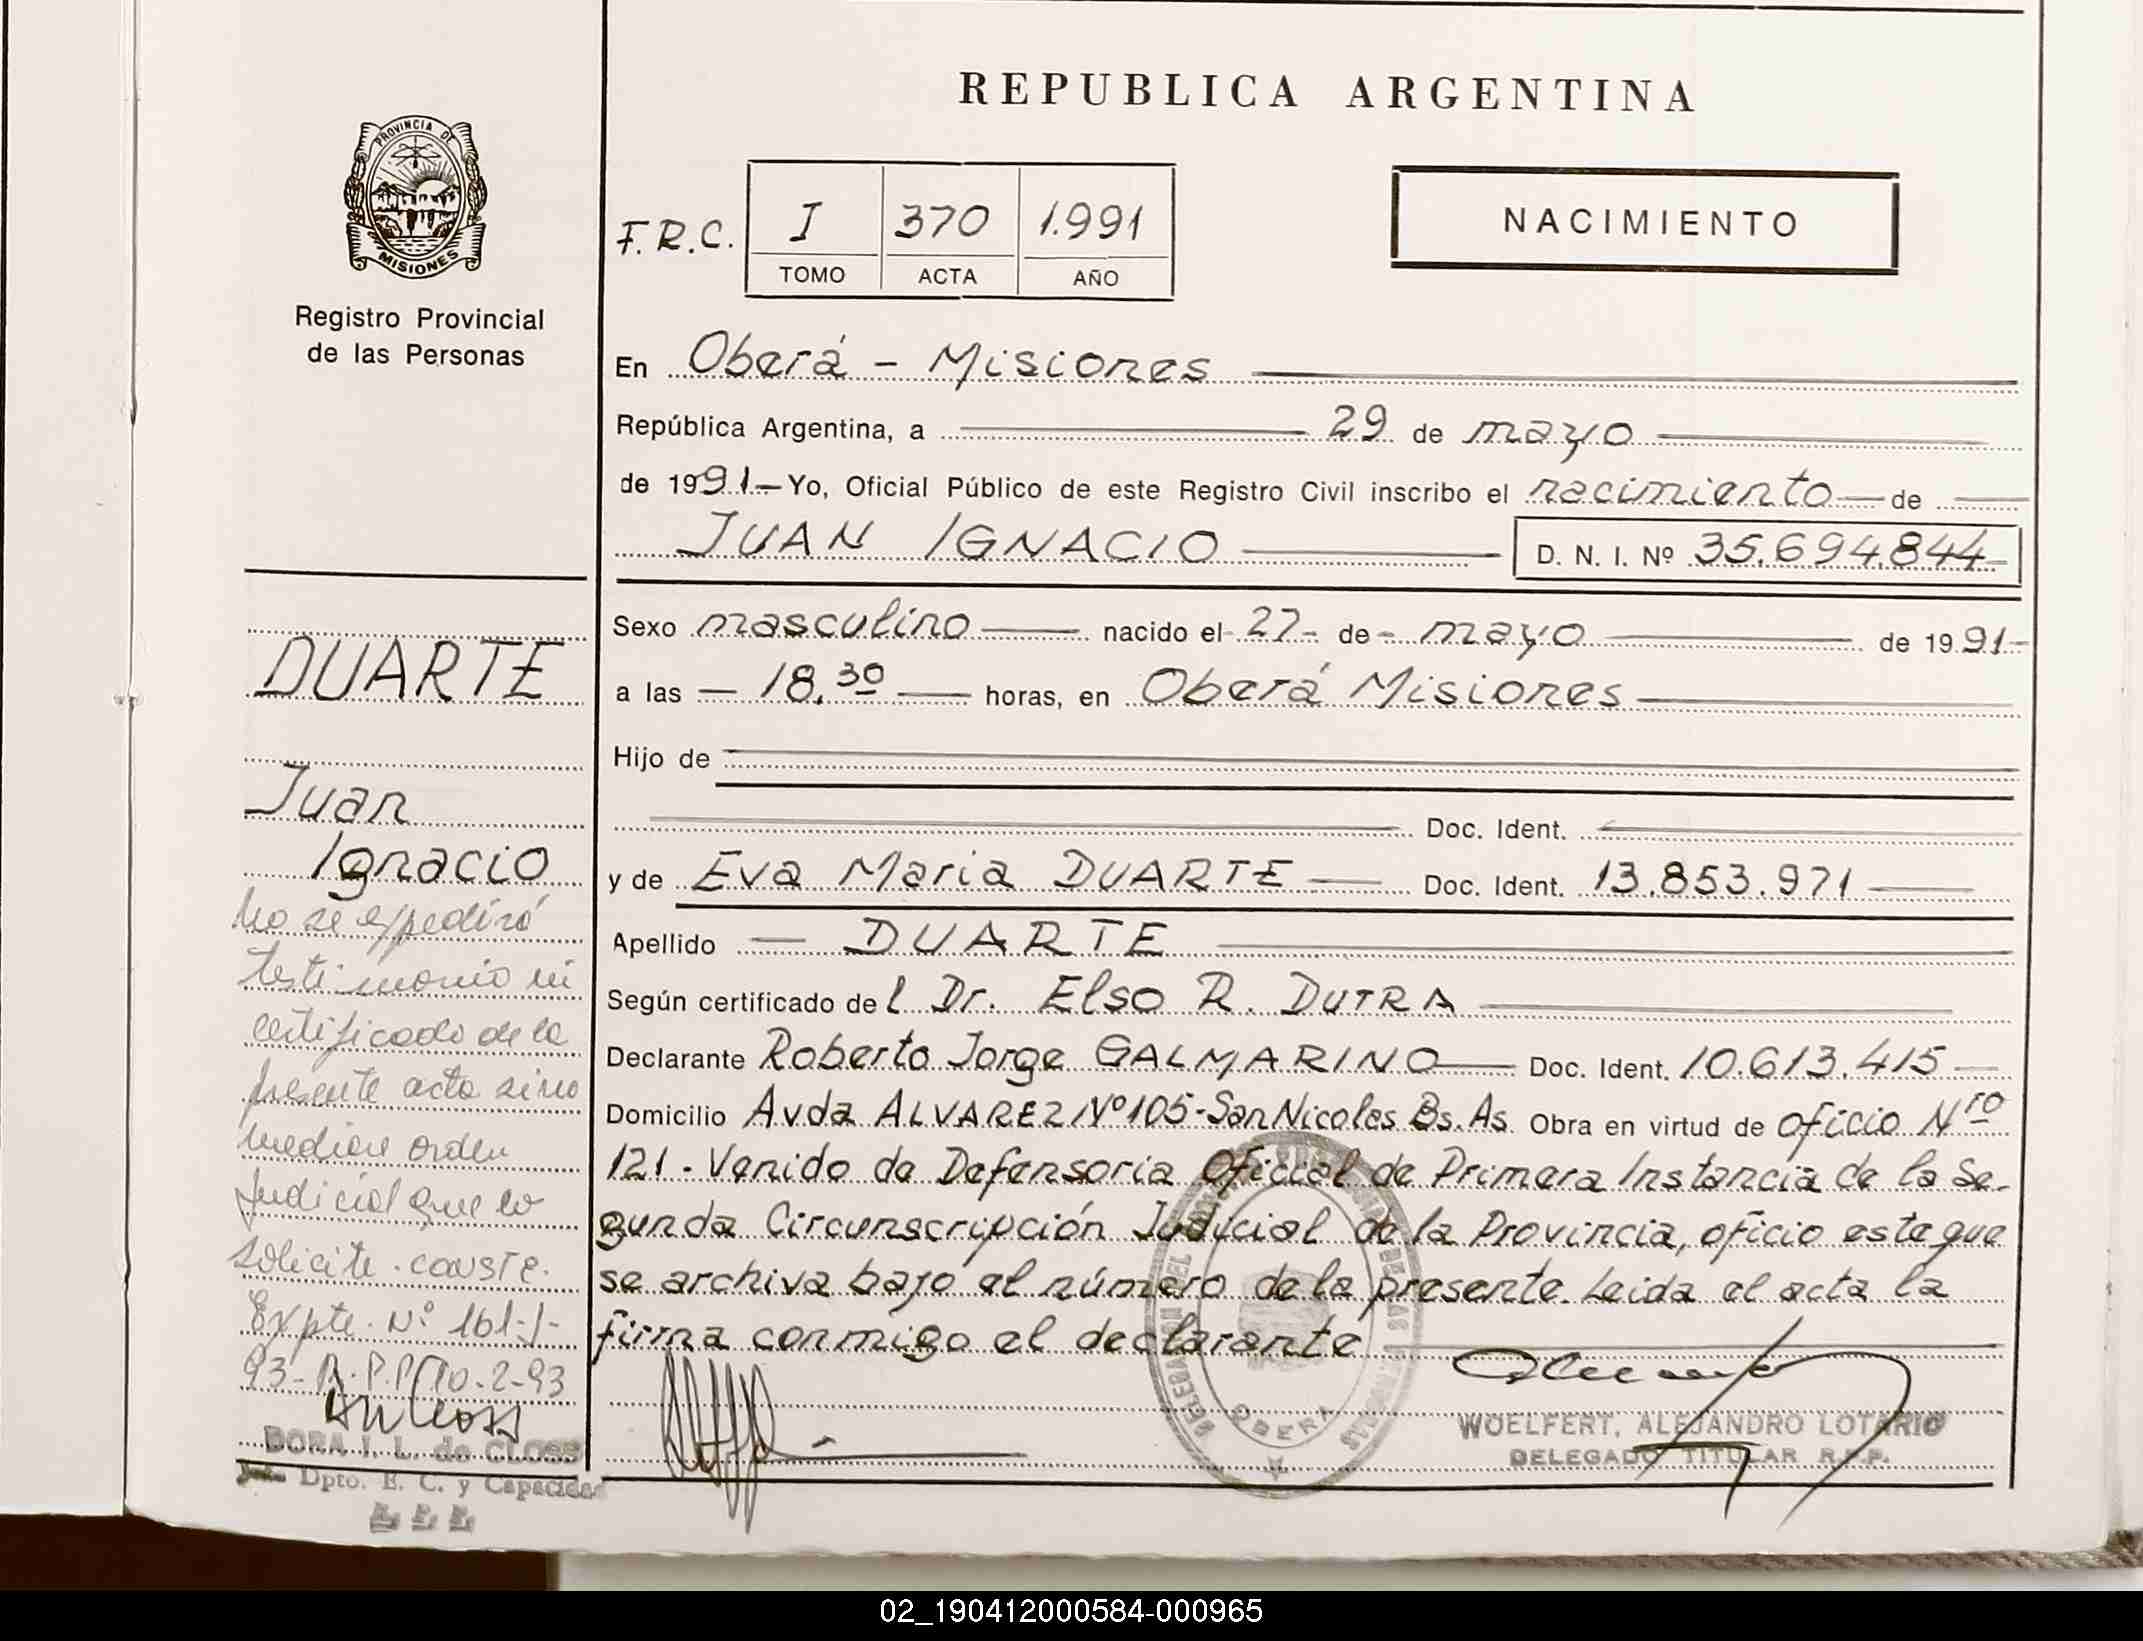 PROVINCIA DE
MISIONES
Registro Provincial
de las Personas
DUARTE
Juan
Ignacio
No se expedirá
testimonio ni
certificado de la
presente acta sino
mediare orden
Judicial que lo
solicite. conste.
Expte. Nº 161-J-
93-R.P.P. 10-2-93
DORA I. L. de CLOSS
Dpto. E. C. y Capacidad
REPUBLICA ARGENTINA
F.R.C. I 370 1.991
TOMO ACTA AÑO
NACIMIENTO
En Oberá - Misiones
República Argentina, a 29 de mayo
de 1991- Yo, Oficial Público de este Registro Civil inscribo el nacimiento de
JUAN IGNACIO D. N. I. Nº 35.694.844
Sexo masculino nacido el 27 de mayo de 1991-
a las 18,30 horas, en Oberá Misiones
Hijo de
Doc. Ident.
y de Eva Maria DUARTE Doc. Ident. 13.853.971
Apellido DUARTE
Según certificado del Dr. Elso R. DUTRA
Declarante Roberto Jorge GALMARINO Doc. Ident. 10.613.415
Domicilio Avda ALVAREZ Nº 105-San Nicolas Bs.As. Obra en virtud de oficio Nro
121. Venido de Defensoria Oficial de Primera Instancia de la Se-
gunda Circunscripción Judicial de la Provincia, oficio este que
se archiva bajo el número de la presente. Leida el acta la
firma conmigo el declarante
OBERA
WOELFERT, ALEJANDRO LOTARIO
DELEGADO TITULAR R.P.P.
02_190412000584-000965